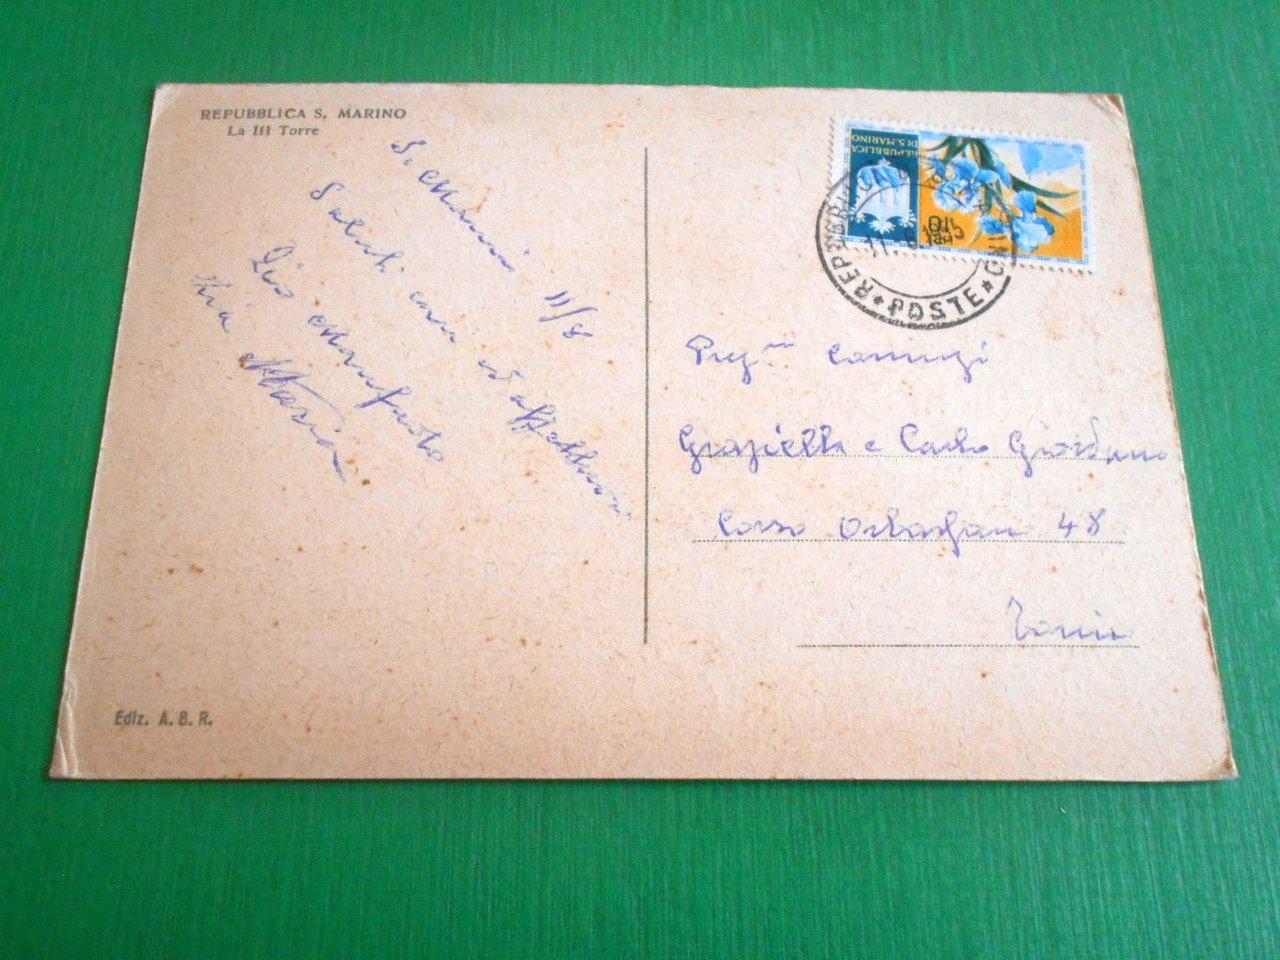 REPUBBLICA S. MARINO
La III Torre
S. Marino 11/8
Saluti cari ed affettuosi
Zio
Zia Maria
REPUBBLICA
DI S. MARINO
POSTE
Preg.mi Coniugi
Graziella e Carlo Giordano
Corso Orbassano 48
Torino
Ediz. A. B. R.